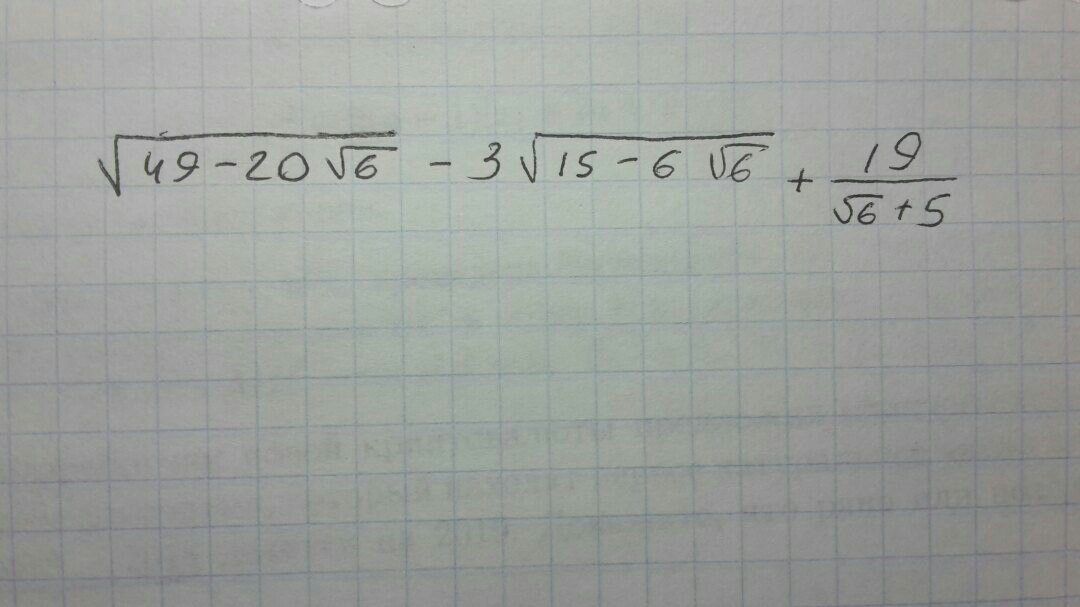 √(49-20√6) - 3√(15-6√6) + 19/(√6+5)